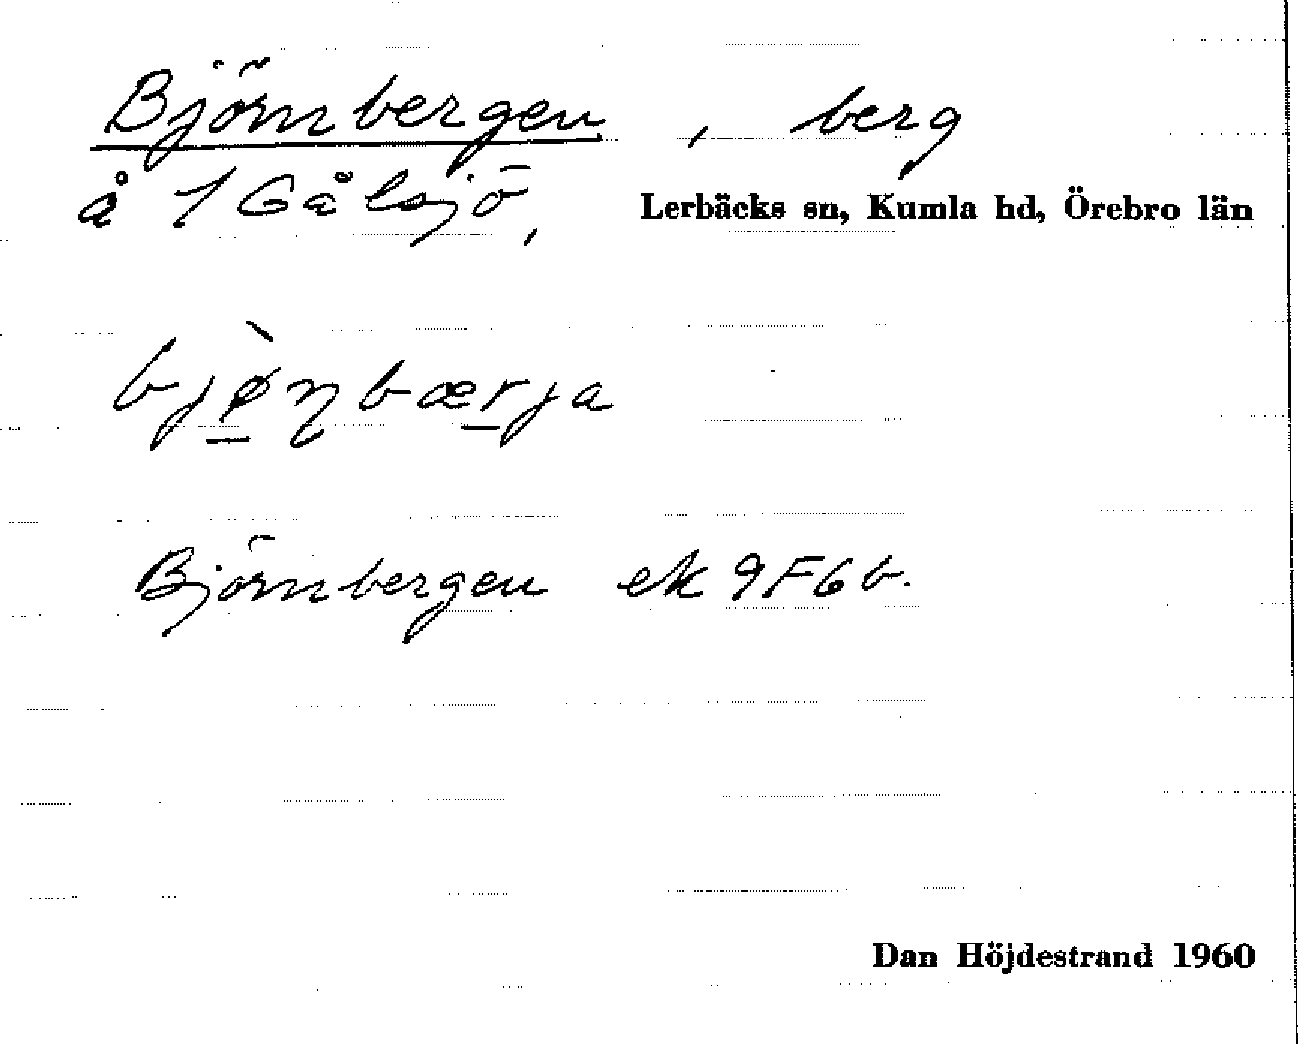 Björnbergen, berg
å 1 Gålsjö, Lerbäcks sn, Kumla hd, Örebro län
bjø̠̀ɳbær̠ja
Björnbergen ek 9F6b.
Dan Höjdestrand 1960